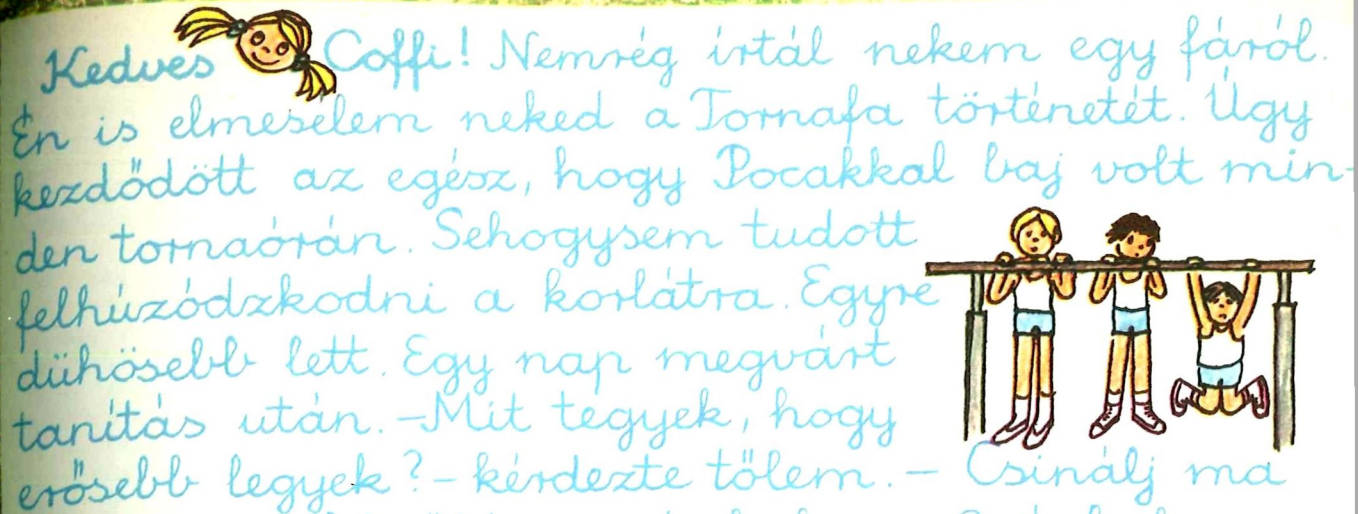 Kedves Coffi! Nemrég írtál nekem egy fáról.
Én is elmesélem neked a Tornafa történetét. Úgy
kezdődött az egész, hogy Pocakkal baj volt min-
den tornaórán. Sehogysem tudott
felhúzódzkodni a korlátra. Egyre
dühösebb lett. Egy nap megvárt
tanítás után. – Mit tegyek, hogy
erősebb legyek? – kérdezte tőlem. – Csinálj ma